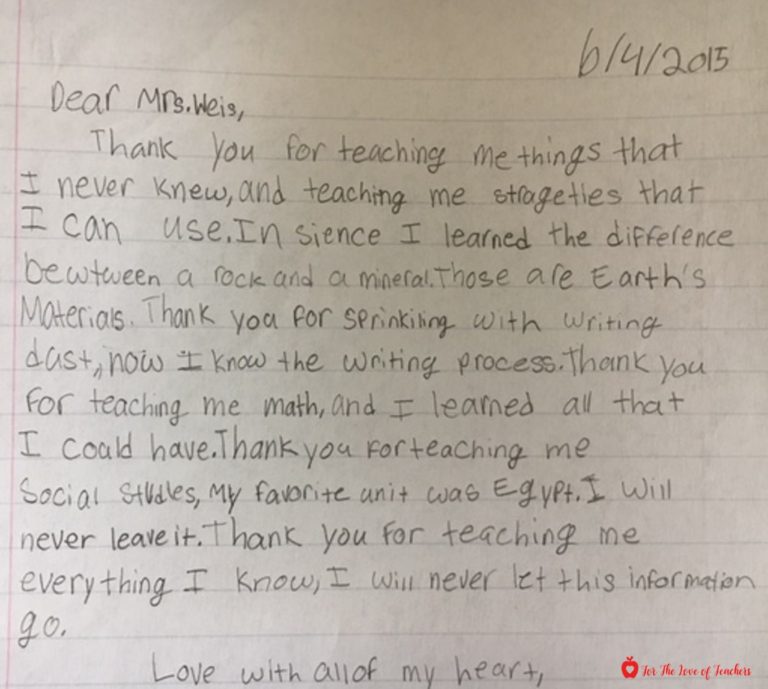 6/4/2015
Dear Mrs. Weis,
Thank you for teaching me things that
I never knew, and teaching me strageties that
I can use. In sience I learned the difference
bewtween a rock and a mineral. Those are Earth's
Materials. Thank you for sprinkiling with writing
dust, now I know the writing process. Thank you
for teaching me math, and I learned all that
I could have. Thank you for teaching me
Social Studies, My favorite unit was Egypt. I will
never leave it. Thank you for teaching me
everything I know, I will never let this information
go.
Love with all of my heart,
For The Love of Teachers